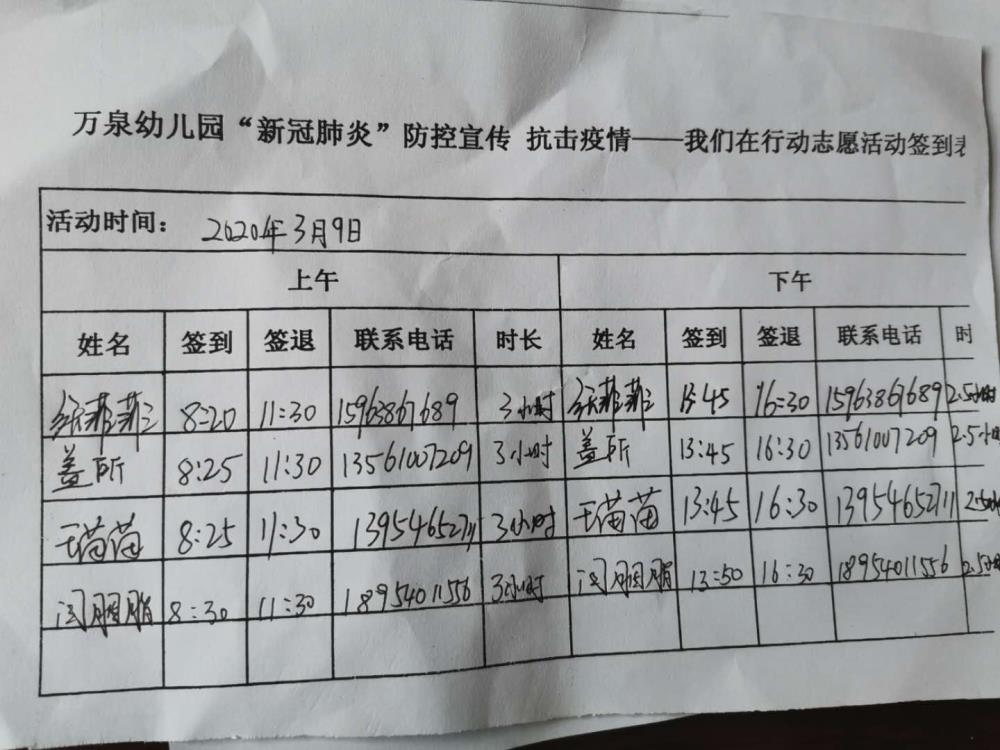 万泉幼儿园“新冠肺炎”防控宣传 抗击疫情——我们在行动志愿活动签到表
活动时间： 2020年3月9日
上午 下午
姓名 签到 签退 联系电话 时长 姓名 签到 签退 联系电话 时
菲菲 8:20 11:30 15963867689 3小时 菲菲 13:45 16:30 15963867689 2.5小时
盖所 8:25 11:30 13561007209 3小时 盖所 13:45 16:30 13561007209 2.5小时
王苗苗 8:25 11:30 13954652711 3小时 王苗苗 13:45 16:30 13954652711 2.5小时
闫胭脂 8:30 11:30 18954011556 3小时 闫胭脂 13:50 16:30 18954011556 2.5小时